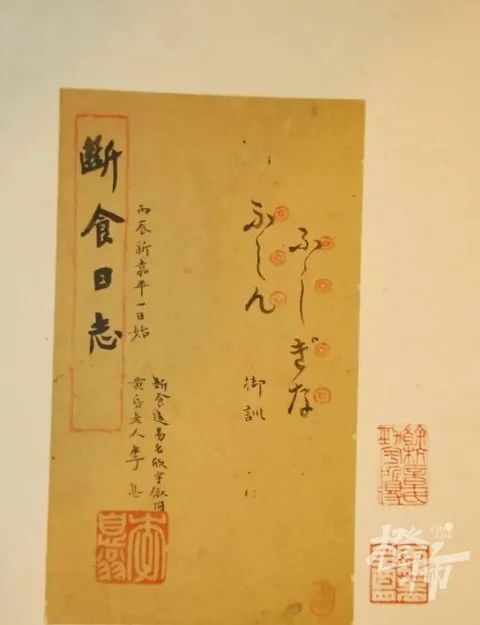 ふしぎな
ふしん
御訓
斷食日志
丙辰新嘉平一日始
斷食後易名欣字俶同
黃昏老人李息
李息翁
橙柿